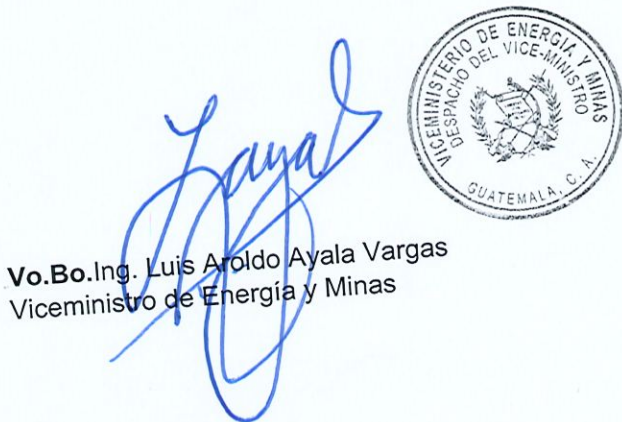 VICEMINISTERIO DE ENERGIA Y MINAS
DESPACHO DEL VICE-MINISTRO
GUATEMALA, C. A.
Vo.Bo.Ing. Luis Aroldo Ayala Vargas
Viceministro de Energía y Minas